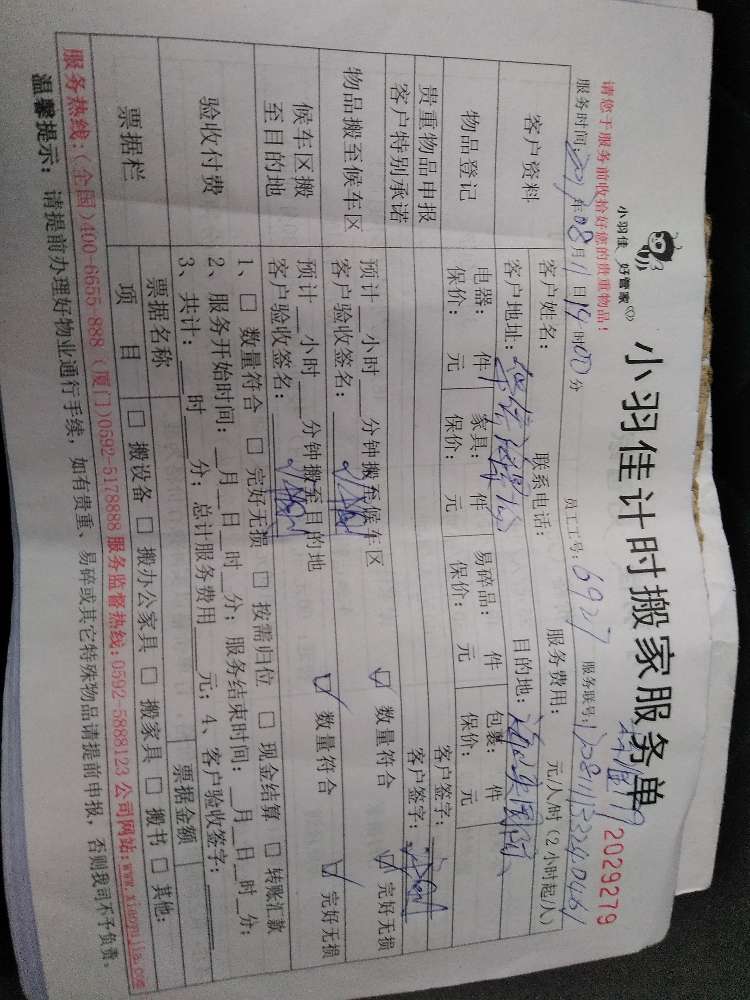 小羽佳 好管家
小羽佳计时搬家服务单
2029279
请您于服务前收拾好您的贵重物品!
服务时间:2021年08月11日19时00分 员工工号:6927 服务联号:
客户资料
客户姓名: 联系电话: 服务费用: 元/人/时(2小时起/人)
客户地址: 目的地:
物品登记
电器: 件 家具: 件 易碎品: 件 包裹: 件
保价: 元 保价: 元 保价: 元 保价: 元
贵重物品申报 客户签字:
客户特别承诺 客户签字:
物品搬至候车区
预计__小时__分钟搬至候车区 ☑ 数量符合 ☑ 完好无损
客户验收签名:
候车区搬至目的地
预计__小时__分钟搬至目的地 ☑ 数量符合 ☑ 完好无损
客户验收签名:
验收付费
1、□ 数量符合 □ 完好无损 □ 按需归位 □ 现金结算 □ 转账汇款
2、服务开始时间:__月__日__时__分; 服务结束时间:__月__日__时__分;
3、共计:__时__分; 总计服务费用__元; 4、客户验收签字:
票据栏
票据名称 票据金额
项 目 □ 搬设备 □ 搬办公家具 □ 搬家具 □ 搬书 □ 其他:
服务热线:(全国)400-6655-888 (厦门)0592-5178888 服务监督热线:0592-5888123 公司网站:www.xiaoyujia.com
温馨提示: 请提前办理好物业通行手续,如有贵重、易碎或其它特殊物品请提前申报,否则我司不予负责。